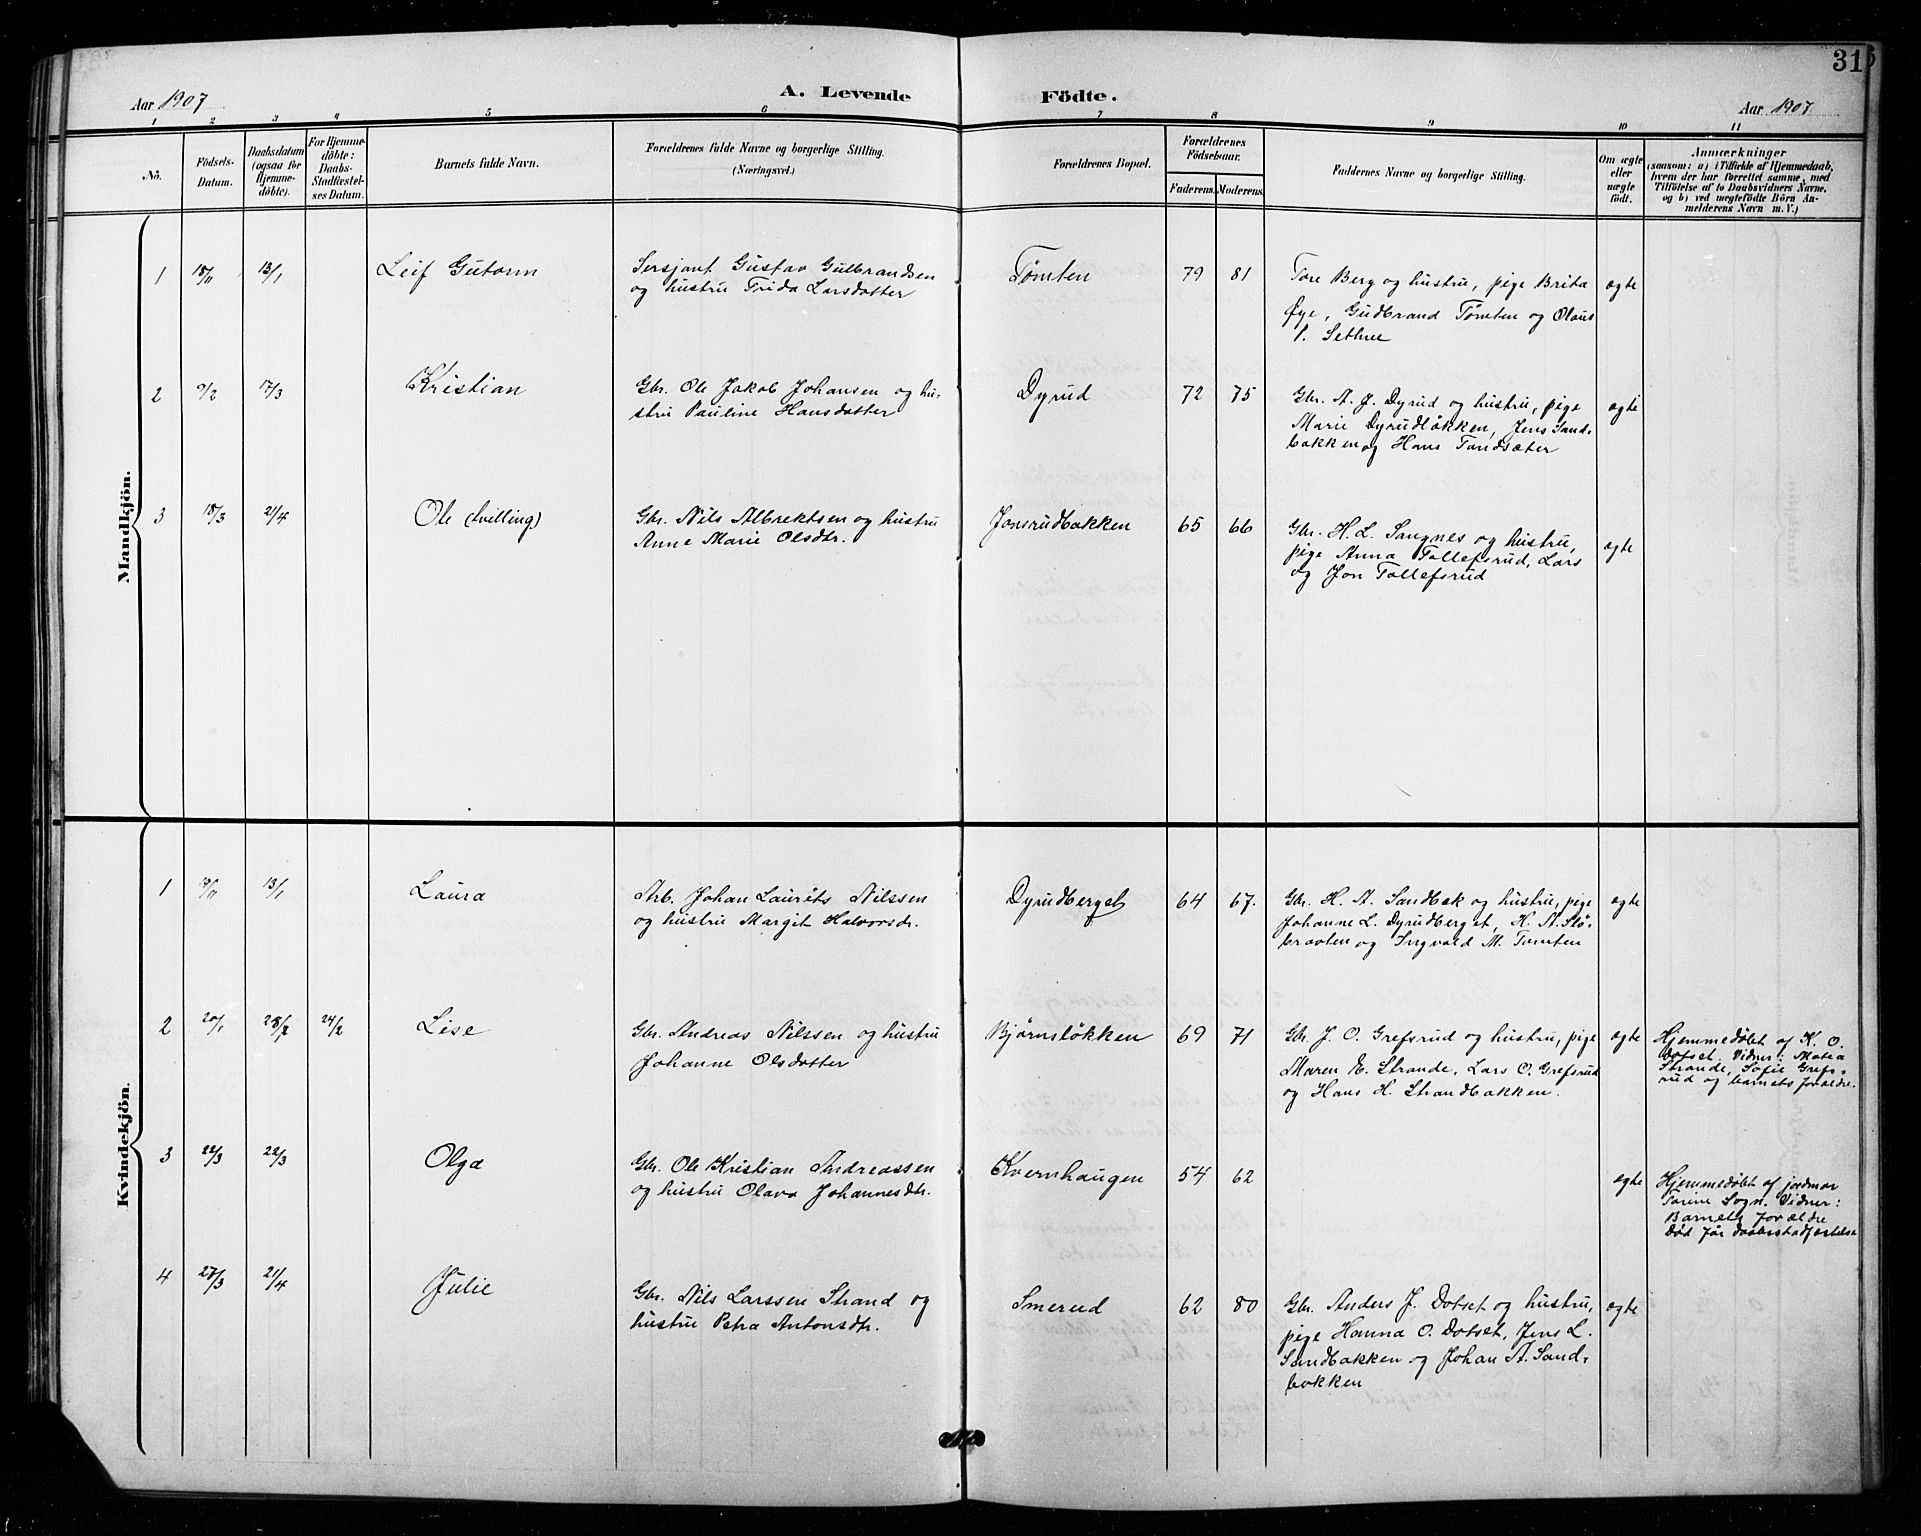 31
Aar 1907
A. Levende Födte.
Aar 1907
1 2 3 4 5 6 7 8 9 10 11
No.
Födsels-Datum.
Daabsdatum (ogsaa for Hjemme-döbte).
For Hjemme-döbte: Daabs-Stadfæstel-ses Datum.
Barnets fulde Navn.
Forældrenes fulde Navne og borgerlige Stilling. (Næringsvei.)
Forældrenes Bopæl.
Forældrenes Födselsaar.
Faderens. Moderens.
Faddernes Navne og borgerlige Stilling.
Om ægte eller uægte födt.
Anmærkninger
(saasom: a) i Tilfælde af Hjemmedaab,
hvem der har forrettet samme, med
Tilföielse af to Daabsvidners Navne,
og b) ved uægtefödte Börn An-
melderens Navn m. V.)
Mandkjön.
1 18/11 13/1 Leif Gutorm
Sersjant Gustav Gulbrandsen
og hustru Frida Larsdatter
Tømten 79 81
Tore Berg og hustru, pige Brita
Øye, Gudbrand Tømten og Olaus
P. Sethne
ægte
2 9/2 17/3 Kristian
Gbr. Ole Jakob Johansen og hu-
stru Pauline Hansdatter
Dyrud 72 75
Gbr. A. J. Dyrud og hustru, pige
Marie Dyrudløkken, Jens Sand-
bakken og Hans Tandsæter
ægte
3 18/3 21/4 Ole (tvilling)
Gbr. Nils Albrektsen og hustru
Anne Marie Olsdtr.
Jonsrudbakken 65 66
Gbr. H. L. Sangnes og hustru,
pige Anna Tollefsrud, Lars
og Jon Tollefsrud
ægte
Kvindekjön.
1 19/11 13/1 Laura
Arb. Johan Laurits Nilssen
og hustru Margit Halvorsdr.
Dyrudberget 64 67.
Gbr. H. A. Sandbak og hustru, pige
Johanne L. Dyrudberget, H. A. Slå-
braaten og Ingvald M. Tømten
ægte
2 20/1 28/2 24/2 Lise
Gbr. Andreas Nilssen og hustru
Johanne Olsdatter
Bjørnsløkken 69 71
Gbr. J. O. Grefsrud og hustru, pige
Maren E. Strande, Lars O. Grefsrud
og Hans H. Strandbakken.
ægte
Hjemmedøbt af K. O.
Dotset. Vidner: Matea
Strande, Sofie Grefs-
rud og barnets forældre.
3 22/3 22/3 Olga
Gbr. Ole Kristian Andreassen
og hustru Olava Johannesdtr.
Kvernhaugen 54 62
ægte
Hjemmedøbt af jordmor
Torine Sogn. Vidner:
Barnets forældre
Død før daabsstadfæstelse
4 27/3 21/4 Julie
Gbr. Nils Larssen Strand og
hustru Petra Antonsdtr.
Smerud 62 80
Gbr. Anders J. Dotset og hustru,
pige Hanna O. Dotset, Jens L.
Sandbakken og Johan A. Sand-
bakken
ægte